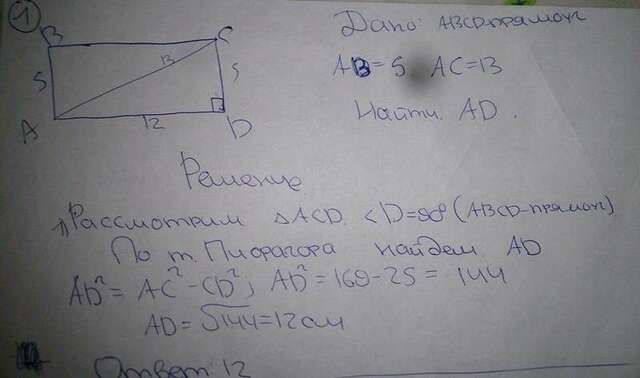 1
B C
13
5 5
A 12 D
Дано: ABCD-прямоуг
AB=5 AC=13
Найти: AD.
Решение
1) Рассмотрим △ACD. ∠D=90° (ABCD-прямоуг)
По т. Пифагора найдем AD
AD²= AC²-CD²; AD²=169-25=144
AD=√144=12см
Ответ: 12